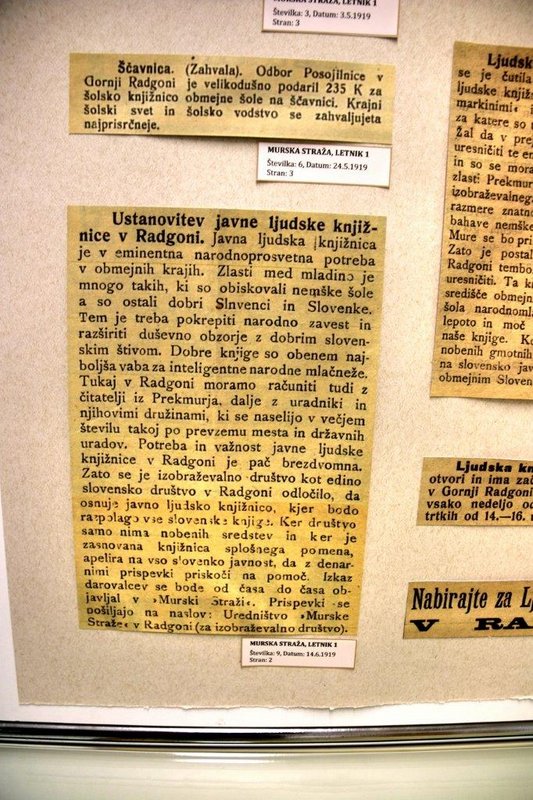 MURSKA STRAŽA, LETNIK 1
Številka: 3, Datum: 3.5.1919
Stran: 3
Ščavnica. (Zahvala). Odbor Posojilnice v
Gornji Radgoni je velikodušno podaril 235 K za
šolsko knjižnico obmejne šole na ščavnici. Krajni
šolski svet in šolsko vodstvo se zahvaljujeta
najprisrčneje.
MURSKA STRAŽA, LETNIK 1
Številka: 6, Datum: 24.5.1919
Stran: 3
Ustanovitev javne ljudske knjiž-
nice v Radgoni. Javna ljudska knjižnica
je v eminentna narodnoprosvetna potreba
v obmejnih krajih. Zlasti med mladino je
mnogo takih, ki so obiskovali nemške šole
a so ostali dobri Slnvenci in Slovenke.
Tem je treba pokrepiti narodno zavest in
razširiti duševno obzorje z dobrim sloven-
skim štivom. Dobre knjige so obenem naj-
boljša vaba za inteligentne narodne mlačneže.
Tukaj v Radgoni moramo računiti tudi z
čitatelji iz Prekmurja, dalje z uradniki in
njihovimi družinami, ki se naselijo v večjem
številu takoj po prevzemu mesta in državnih
uradov. Potreba in važnost javne ljudske
knjižnice v Radgoni je pač brezdvomna.
Zato se je izobraževalno društvo kot edino
slovensko društvo v Radgoni odločilo, da
osnuje javno ljudsko knjižnico, kjer bodo
razpolago vse slovenske knjige. Ker društvo
samo nima nobenih sredstev in ker je
zasnovana knjižnica splošnega pomena,
apelira na vso slovensko javnost, da z denar-
nimi prispevki priskoči na pomoč. Izkaz
darovalcev se bode od časa do časa ob-
javljal v »Murski Straži«. Prispevki se
pošiljajo na naslov: Uredništvo »Murske
Straže« v Radgoni (za izobraževalno društvo).
MURSKA STRAŽA, LETNIK 1
Številka: 9, Datum: 14.6.1919
Stran: 2
Ljudsk
se je čutila
ljudske knjiž
markinimi«
za katere so
Žal da v pre
uresničiti te
in so se mora
zlasti Prekmur
izobraževalnega
razmere znatno
bahave nemške
Mure se bo pri
Zato je postal
Radgoni tembo
uresničiti. Ta k
središče obmejn
šola narodnoml
lepoto in moč
naše knjige. K
nobenih gmotnih
na slovensko jav
obmejnim Sloven
Ljudska kn
otvori in ima zač
v Gornji Radgoni
vsako nedeljo od
trtkih od 14.—16.
Nabirajte za L
V RA